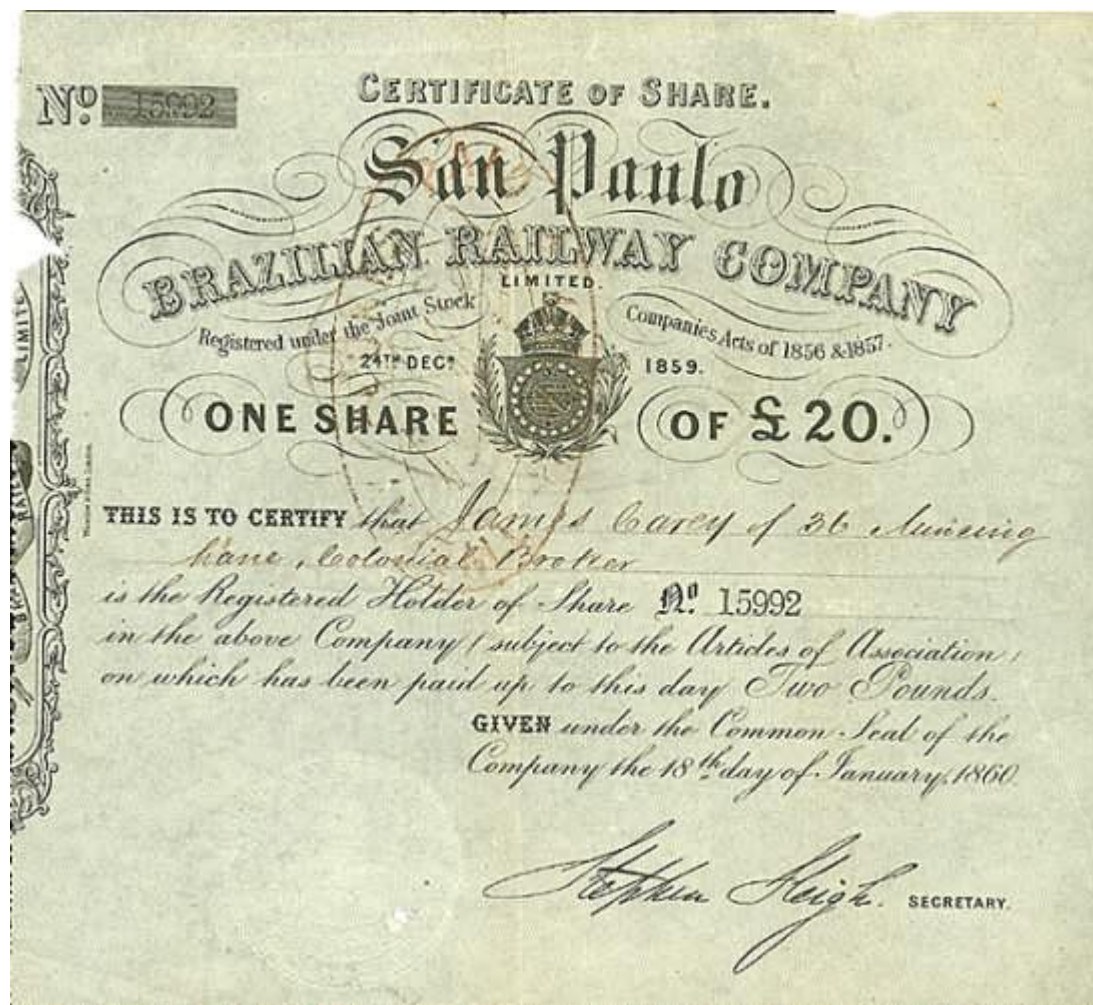 CERTIFICATE OF SHARE.
Nº 15992
San Paulo
BRAZILIAN RAILWAY COMPANY
LIMITED.
Registered under the Joint Stock Companies Acts of 1856 & 1857.
24TH DECR 1859.
ONE SHARE OF £20.
THIS IS TO CERTIFY that James Carey of 36 Mincing
Lane, Colonial Broker
is the Registered Holder of Share Nº 15992
in the above Company (subject to the Articles of Association)
on which has been paid up to this day Two Pounds.
GIVEN under the Common Seal of the
Company the 18th day of January, 1860.
Stephen Sleigh. SECRETARY.
LIMITE